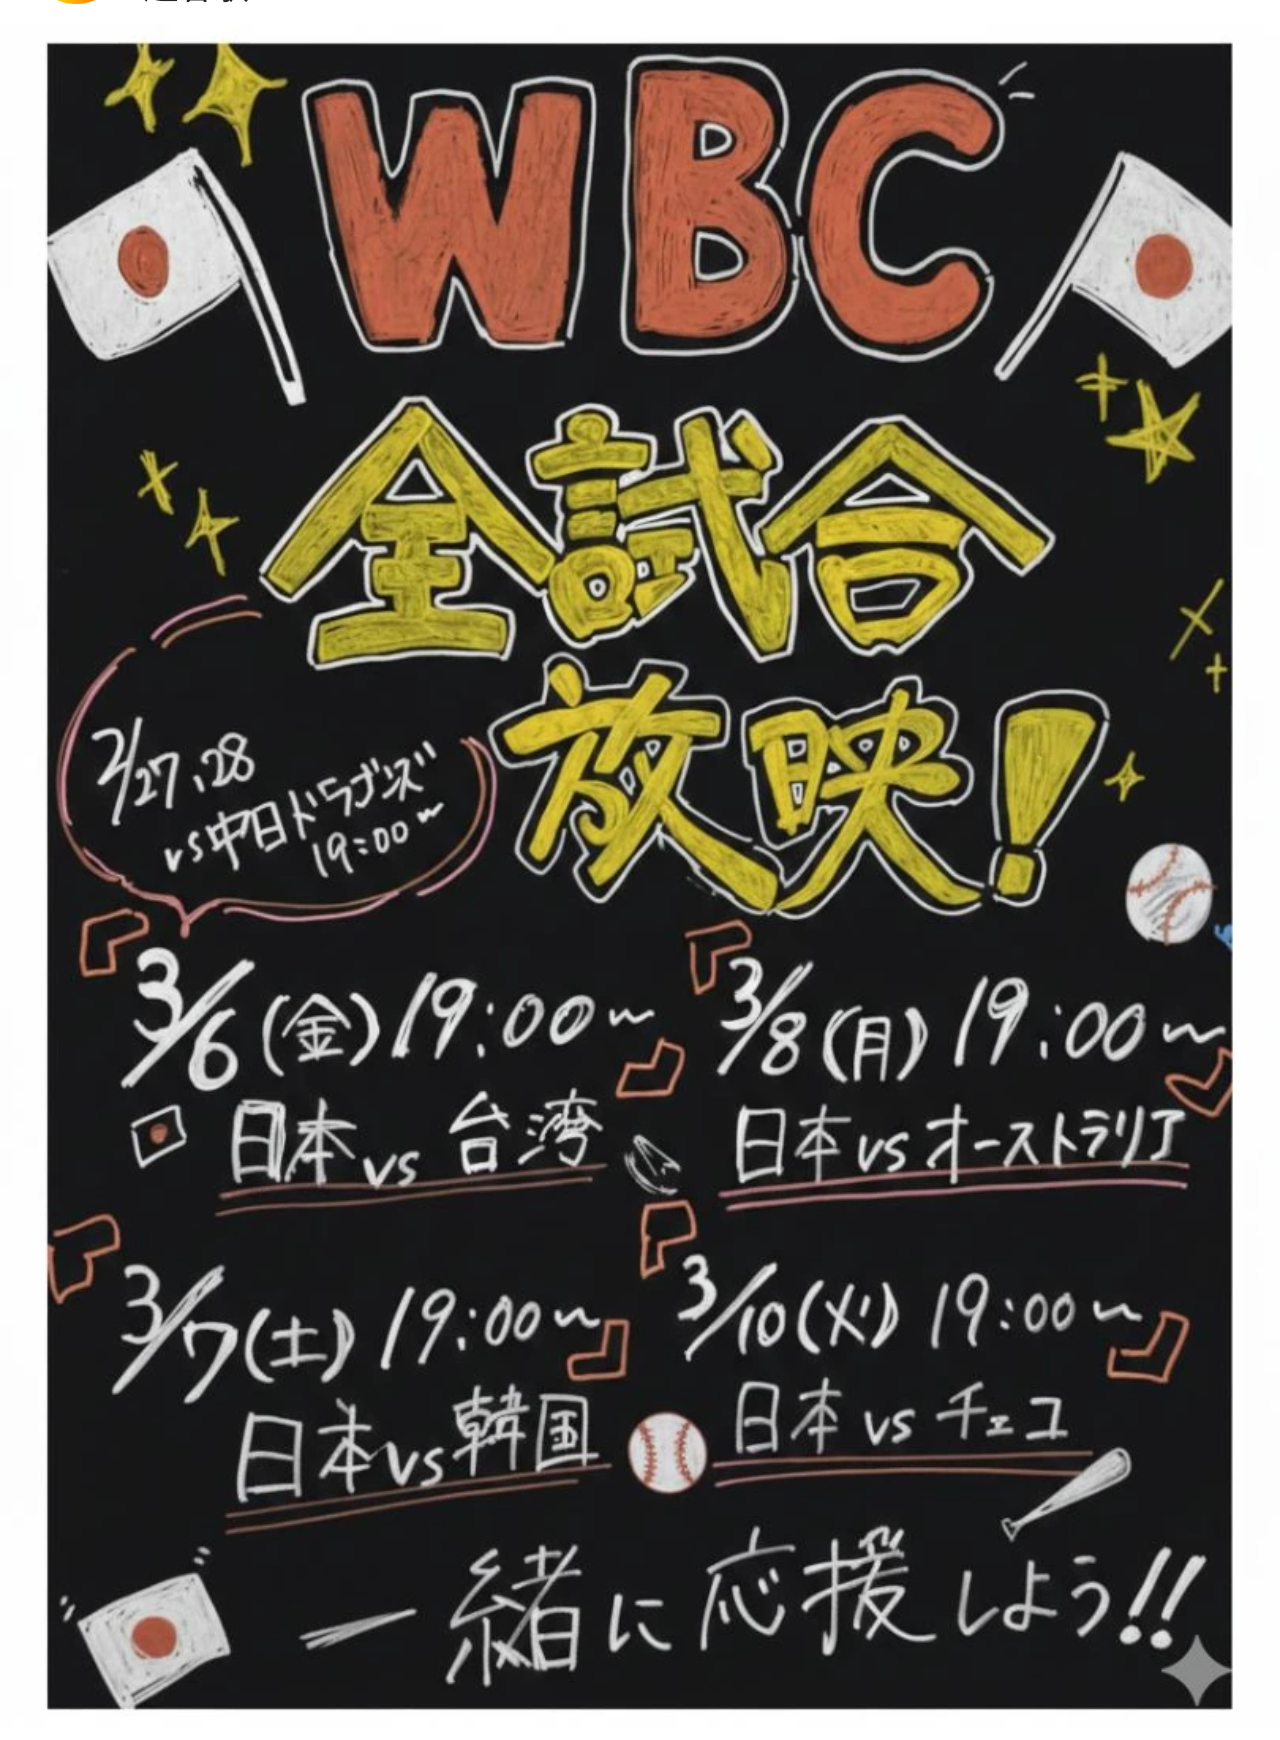 WBC
全試合
放映!
2/27,28
vs中日ドラゴンズ
19:00〜
3/6(金)19:00〜
日本vs台湾
3/8(月)19:00〜
日本vsオーストラリア
3/7(土)19:00〜
日本vs韓国
3/10(火)19:00〜
日本vsチェコ
一緒に応援しよう!!